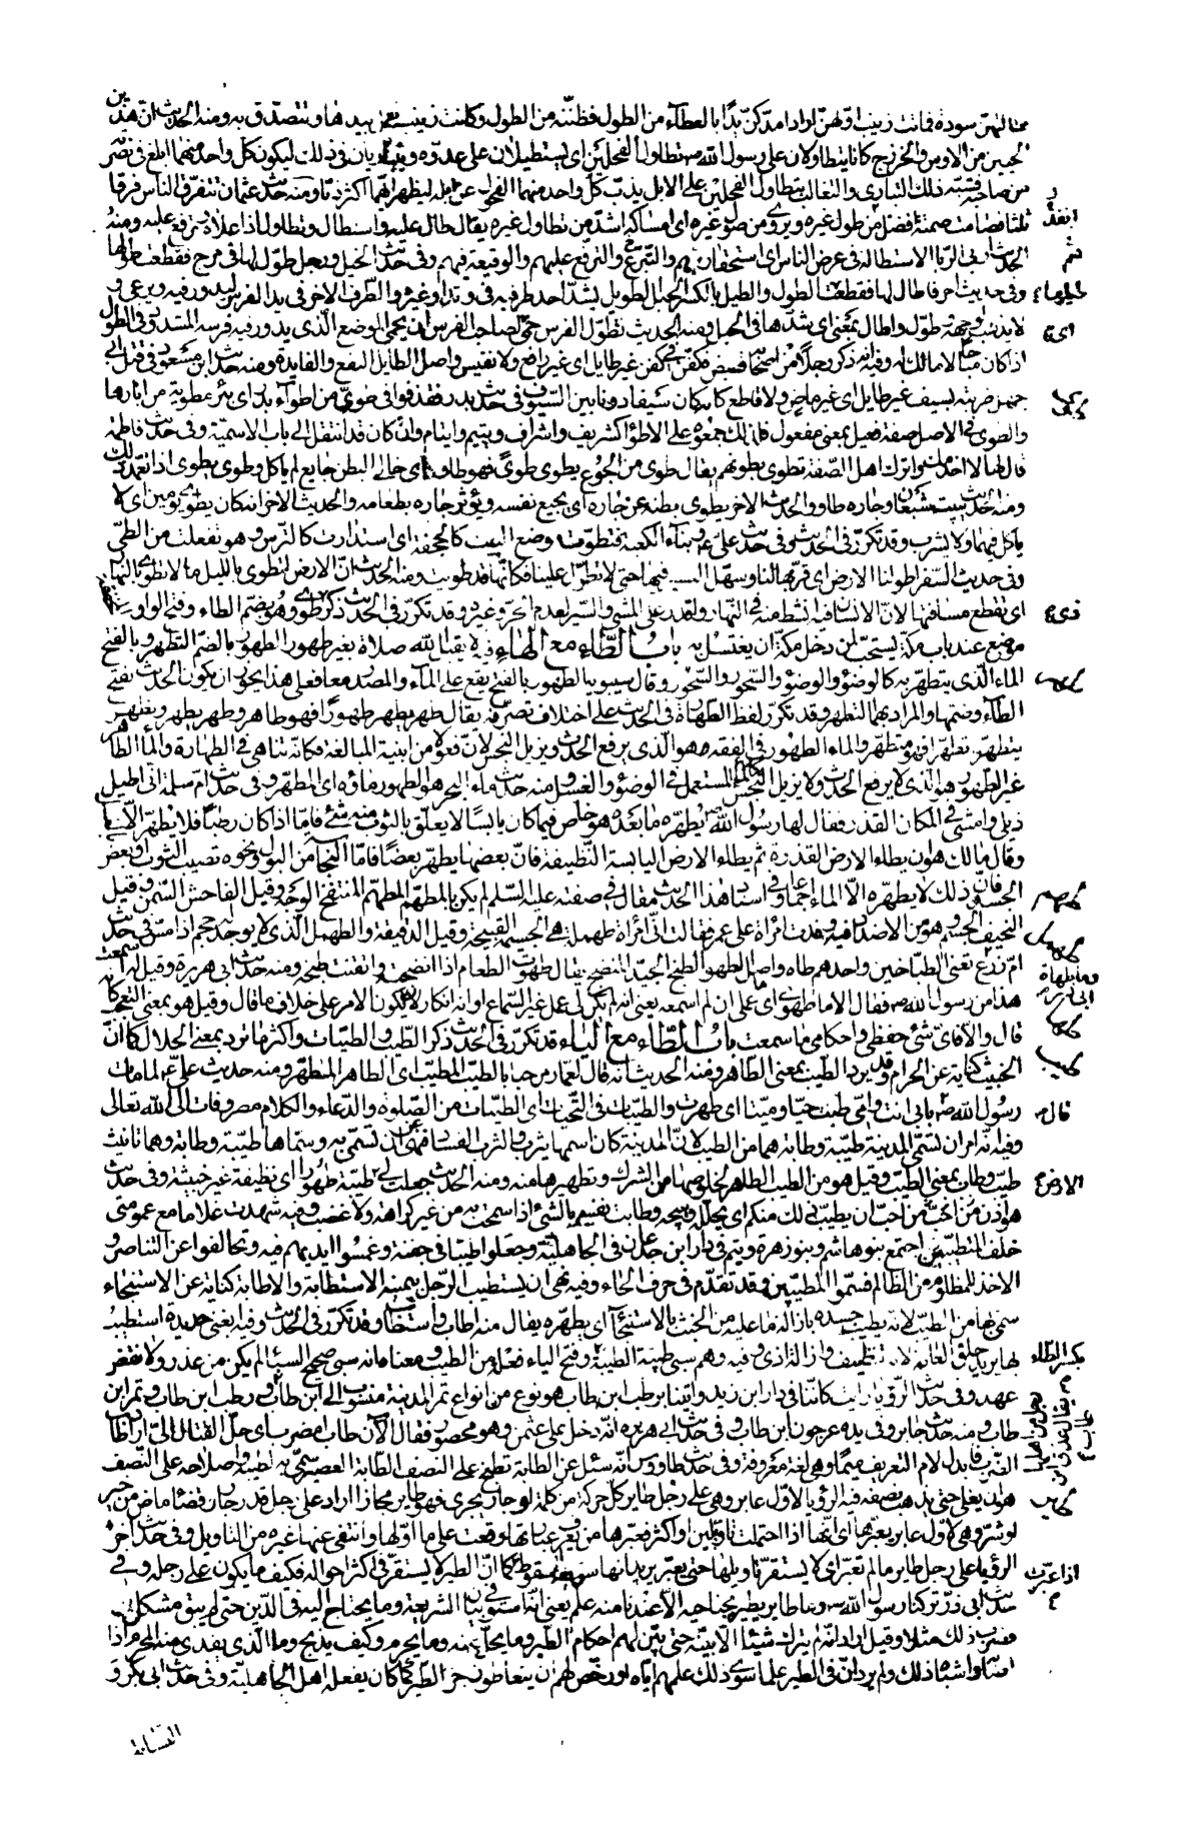 فماتت زينب اولهن اراد امدكن يدا بالعطاء من الطول فظننه من الطول وكانت زينب تعمل بيدها وتتصدق به ومنه الحديث ان هذين
الحيين من الاوس والخزرج كانا يتطاولان على رسول الله تطاول الفحلين اى يستطيلان على عدوه ويتباريان فى ذلك ليكون كل واحد منهما ابلغ فى نصرته
من صاحبه فشبه ذلك التبارى والتغالب بتطاول الفحلين على الابل يذب كل واحد منهما الفحول عن ابله ليظهر ايهما اكثر ذبا ومنه حديث عثمان فتفرق الناس فرقا
ثلثا فصامت صمته انفذ من طول غيره ويروى من صول غيره اى امساكه اشد من تطاول غيره يقال طال عليه واستطال وتطاول اذا علاه وترفع عليه ومنه
الحديث اربى الربا الاستطالة فى عرض الناس اى استحقارهم والترفع عليهم والوقيعة فيهم وفى حديث الخيل ورجل طول لها فى مرج فقطعت طولها
وفى حديث اخر فاطال لها فقطعت الطول والطيل بالكسر الحبل الطويل يشد احد طرفيه فى وتد او غيره والطرف الاخر فى يد الفرس ليدور فيه ويرعى و
لا يذهب لوجهه وطول واطال بمعنى اى شدها فى الحبل ومنه الحديث لطول الفرس حمى اى لصاحب الفرس ان يحمى الموضع الذى يدور فيه فرسه المشدود فى الطول
اذا كان مباحا لا مالك له وفيه انه ذكر رجلا من اصحابه قبض فكفن فى كفن غير طايل اى غير رفيع ولا نفيس واصل الطايل النفع والفايدة ومنه حديث ابن مسعود فى قتل ابى
جهل ضربته بسيف غير طايل اى غير ماض ولا قاطع كانه كان سيفا دونا بين السيوف فى حديث بدر فقذفوا فى طوى من اطواء بدر اى بئر مطوية من ابارها
والطوى فى الاصل صفة فعيل بمعنى مفعول فلذلك جمعوه على الاطواء كشريف واشراف ويتيم وايتام وان كان قد انتقل الى باب الاسمية وفى حديث فاطمة
قال لها لا اخدمك واترك اهل الصفة تطوى بطونهم يقال طوى من الجوع يطوى طوى فهو طاو اى خالى البطن جايع لم ياكل وطوى يطوى اذا تعمد ذلك
ومنه الحديث يبيت شبعان وجاره طاو والحديث الاخر يطوى بطنه عن جاره اى يجيع نفسه ويؤثر جاره بطعامه والحديث الاخر انه كان يطوى يومين اى لا
ياكل فيهما ولا يشرب وقد تكرر فى الحديث وفى حديث على وبناء الكعبة فتطوت موضع البيت كالحجفة اى استدارت كالترس وهو تفعلت من الطى
وفى حديث السفر اطو لنا الارض اى قربها لنا وسهل السير فيها حتى لا تطول علينا فكانها قد طويت ومنه الحديث ان الارض تطوى بالليل ما لا تطوى بالنهار
اى تقطع مسافتها لان الانسان فيه انشط منه فى النهار واقدر على المشى والسير لعدم الحر وغيره وقد تكرر فى الحديث ذكر طوى وهو بضم الطاء وفتح الواو
موضع عند باب مكة يستحب لمن دخل مكة ان يغتسل به باب الطاء مع الهاء فيه لا يقبل الله صلاة بغير طهور الطهور بالضم التطهر وبالفتح
الماء الذى يتطهر به كالوضوء والوضوء والسحور والسحور وقال سيبويه الطهور بالفتح يقع على الماء والمصدر معا فعلى هذا يجوز ان يكون الحديث بفتح
الطاء وضمها والمراد بهما التطهر وقد تكرر لفظ الطهارة فى الحديث على اختلاف تصرفه يقال طهر يطهر طهورا فهو طاهر وطهر يطهر وتطهر
يتطهر تطهرا فهو متطهر والماء الطهور فى الفقه هو الذى يرفع الحدث ويزيل النجس لان فعولا من ابنية المبالغة فكانه تناهى فى الطهارة والماء الطاهر
غير الطهور هو الذى لا يرفع الحدث ولا يزيل النجس كالمستعمل فى الوضوء والغسل ومنه حديث ماء البحر هو الطهور ماؤه اى المطهر وفى حديث ام سلمة انى اطيل
ذيلى وامشى فى المكان القذر فقال لها رسول الله يطهره ما بعده هو خاص فيما كان يابسا لا يعلق بالثوب منه شئ فاما اذا كان رطبا فلا يطهر الا بالماء
وقال مالك هو ان يطاء الارض القذرة ثم يطاء الارض اليابسة النظيفة فان بعضها يطهر بعضا فاما النجاسة من البول ونحوه تصيب الثوب او بعض
الجسد فان ذلك لا يطهره الا الماء اجماعا وفى اسناد هذا الحديث مقال فى صفته عليه السلم لم يكن بالمطهم المطهم المنتفخ الوجه وقيل الفاحش السمن وقيل
النحيف الجسم وهو من الاضداد فيه وفدت امرأة على عمر فقالت انى امرأة طهملة هى الجسيمة القبيحة وقيل الدقيقة والطهمل الذى لا يوجد له حجم اذا مس فى حديث
ام زرع تعنى الطباخين واحدهم طاه واصل الطهو الطبخ الجيد المنضج يقال طهوت الطعام اذا انضجته واتقنت طبخه ومنه حديث ابى هريرة وقيل له اسمعت
هذا من رسول الله فقال الا ما طهوى اى ما عملى ان لم اسمعه يعنى انه لم يكن لى عمل غير السماع او انه انكار لان يكون الامر على خلاف ما قال وقيل هو بمعنى التعجب كانه
قال والا فاى شئ حفظى واحكامى ما سمعت باب الطاء مع الياء قد تكرر فى الحديث ذكر الطيب والطيبات واكثر ما ترد بمعنى الحلال كما ان
الخبيث كناية عن الحرام وقد يرد الطيب بمعنى الطاهر ومنه الحديث انه قال لعمار مرحبا بالطيب المطيب اى الطاهر المطهر ومنه حديث على لما مات
رسول الله بابى انت وامى طبت حيا وميتا اى طهرت والطيبات فى التحيات اى الطيبات من الصلوة والدعاء والكلام مصروفات الى الله تعالى
وفيه انه امر ان تسمى المدينة طيبة وطابة هما من الطيب لان المدينة كان اسمها يثرب والثرب الفساد فنهى ان تسمى به وسماها طيبة وطابة وهما تانيث
طيب وطاب بمعنى الطيب وقيل هو من الطيب الطاهر لخلوصها من الشرك وتطهيرها منه ومنه الحديث جعلت لى الارض طيبة طهورا اى نظيفة غير خبيثة وفى حديث
هوازن من احب منكم ان يطيب ذلك منكم اى يحلله ويبيحه وطابت نفسه بالشئ اذا سمحت به من غير كراهة ولا غضب وفيه شهدت غلاما مع عمومتى
حلف المطيبين اجتمع بنو هاشم وبنو زهرة وتيم فى دار ابن جدعان فى الجاهلية وجعلوا طيبا فى جفنة وغمسوا ايديهم فيه وتحالفوا على التناصر و
الاخذ للمظلوم من الظالم فسموا المطيبين وقد تقدم فى حرف الحاء وفيه نهى ان يستطيب الرجل بيمينه الاستطابة والاطابة كناية عن الاستنجاء
سمى بها من الطيب لانه يطيب جسده بازالة ما عليه من الخبث بالاستنجاء اى يطهره يقال منه اطاب واستطاب وقد تكرر فى الحديث وفيه ابغنى حديدة استطيب
بها يريد حلق العانة لانه تنظيف وازالة اذى وفيه وهم سبى طيبة الطيبة بكسر الطاء وفتح الياء فعلة من الطيب ومعناه انه سبى صحيح السباء لم يكن عن غدر ولا نقض
عهد وفى حديث الرؤيا رايت كاننا فى دار ابن زيد واتينا برطب ابن طاب هو نوع من انواع تمر المدينة منسوب الى ابن طاب رجل من اهلها يقال عذق ابن طاب ورطب ابن طاب وتمر ابن
طاب ومنه حديث جابر وفى يده عرجون ابن طاب وفى حديث ابى هريرة انه دخل على عثمن وهو محصور فقال الآن طاب امضرب اى حل القتال اراد طاب
الضرب فابدل لام التعريف ميما وهى لغة معروفة وفى حديث طاووس انه سئل عن الطابة تطبخ على النصف الطابة العصير سمى به لطيبه واصلاحه على النصف
هو ان يغلى حتى يذهب نصفه فيه الرؤيا لاول عابر وهى على رجل طاير كل حركة من كلمة او جار يجرى فهو طاير مجازا اراد على رجل قدر جار وقضاء ماض من خير
او شر وهى لاول عابر يعبرها اى انها اذا احتملت تاويلين او اكثر فعبرها من يعرف عبارتها وقعت على ما اولها وانتفى عنها غيره من التاويل وفى حديث اخر
الرؤيا على رجل طاير ما لم تعبر اى لا يستقر تاويلها حتى تعبر يريد انها سريعة السقوط اذا عبرت كما ان الطير لا يستقر فى اكثر احواله فكيف ما يكون على رجله وفى
حديث ابى ذر تركنا رسول الله وما طاير يطير بجناحيه الا عندنا منه علم يعنى انه استوفى بيان الشريعة وما يحتاج اليه فى الدين حتى لم يبق مشكل
فضرب ذلك مثلا وقيل اراد انه لم يترك شيئا الا بينه حتى بين لهم احكام الطير وما يحل منه وما يحرم وكيف يذبح وما الذى يفدى منه المحرم اذا
اصابه واشباه ذلك ولم يرد ان فى الطير علما سوى ذلك علمهم اياه او رخص لهم ان يتعاطوا زجر الطير كما كان يفعله اهل الجاهلية وفى حديث ابى بكر و
النسابة